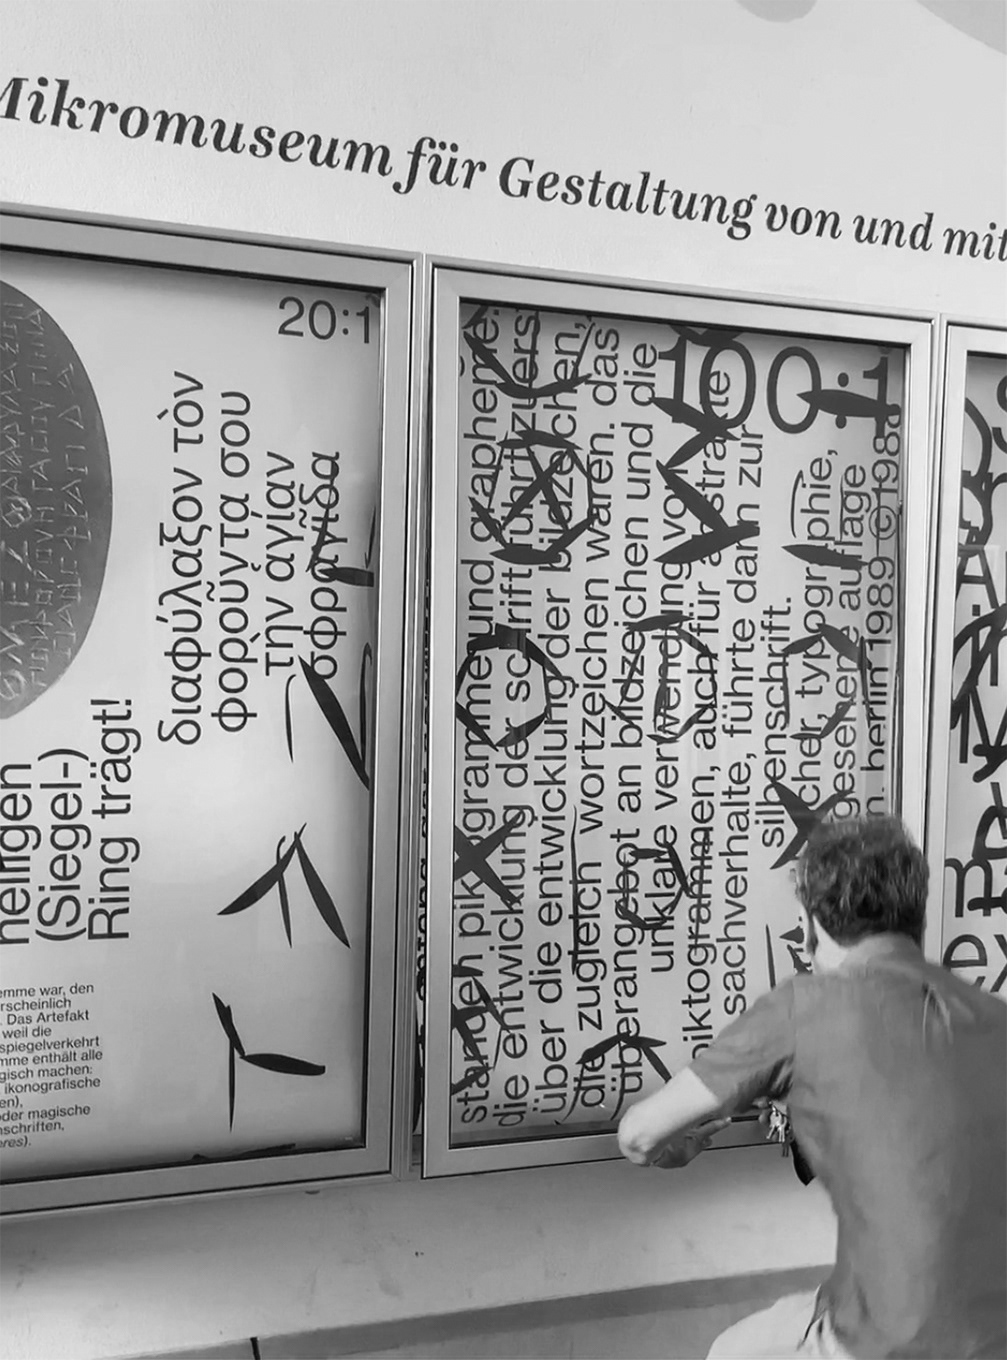 Mikromuseum für Gestaltung von und mit
20:1
διαφύλαξον τὸν
φοροῦντά σου
τὴν ἁγίαν
σφραγῖδα
heiligen
(Siegel-)
Ring trägt!
emme war, den
rscheinlich
. Das Artefakt
weil die
spiegelverkehrt
mme enthält alle
gisch machen:
ikonografische
en),
oder magische
nschriften,
eres).
100:1
standen piktogramme und grapheme.
die entwicklung der schrift führt zuerst
über die entwicklung der bildzeichen,
die zugleich wortzeichen waren. das
überangebot an bildzeichen und die
unklare verwendung von
piktogrammen, auch für abstrakte
sachverhalte, führte dann zur
silbenschrift.
cher, typographie,
gesehene auflage
n. berlin 1989 © 1988